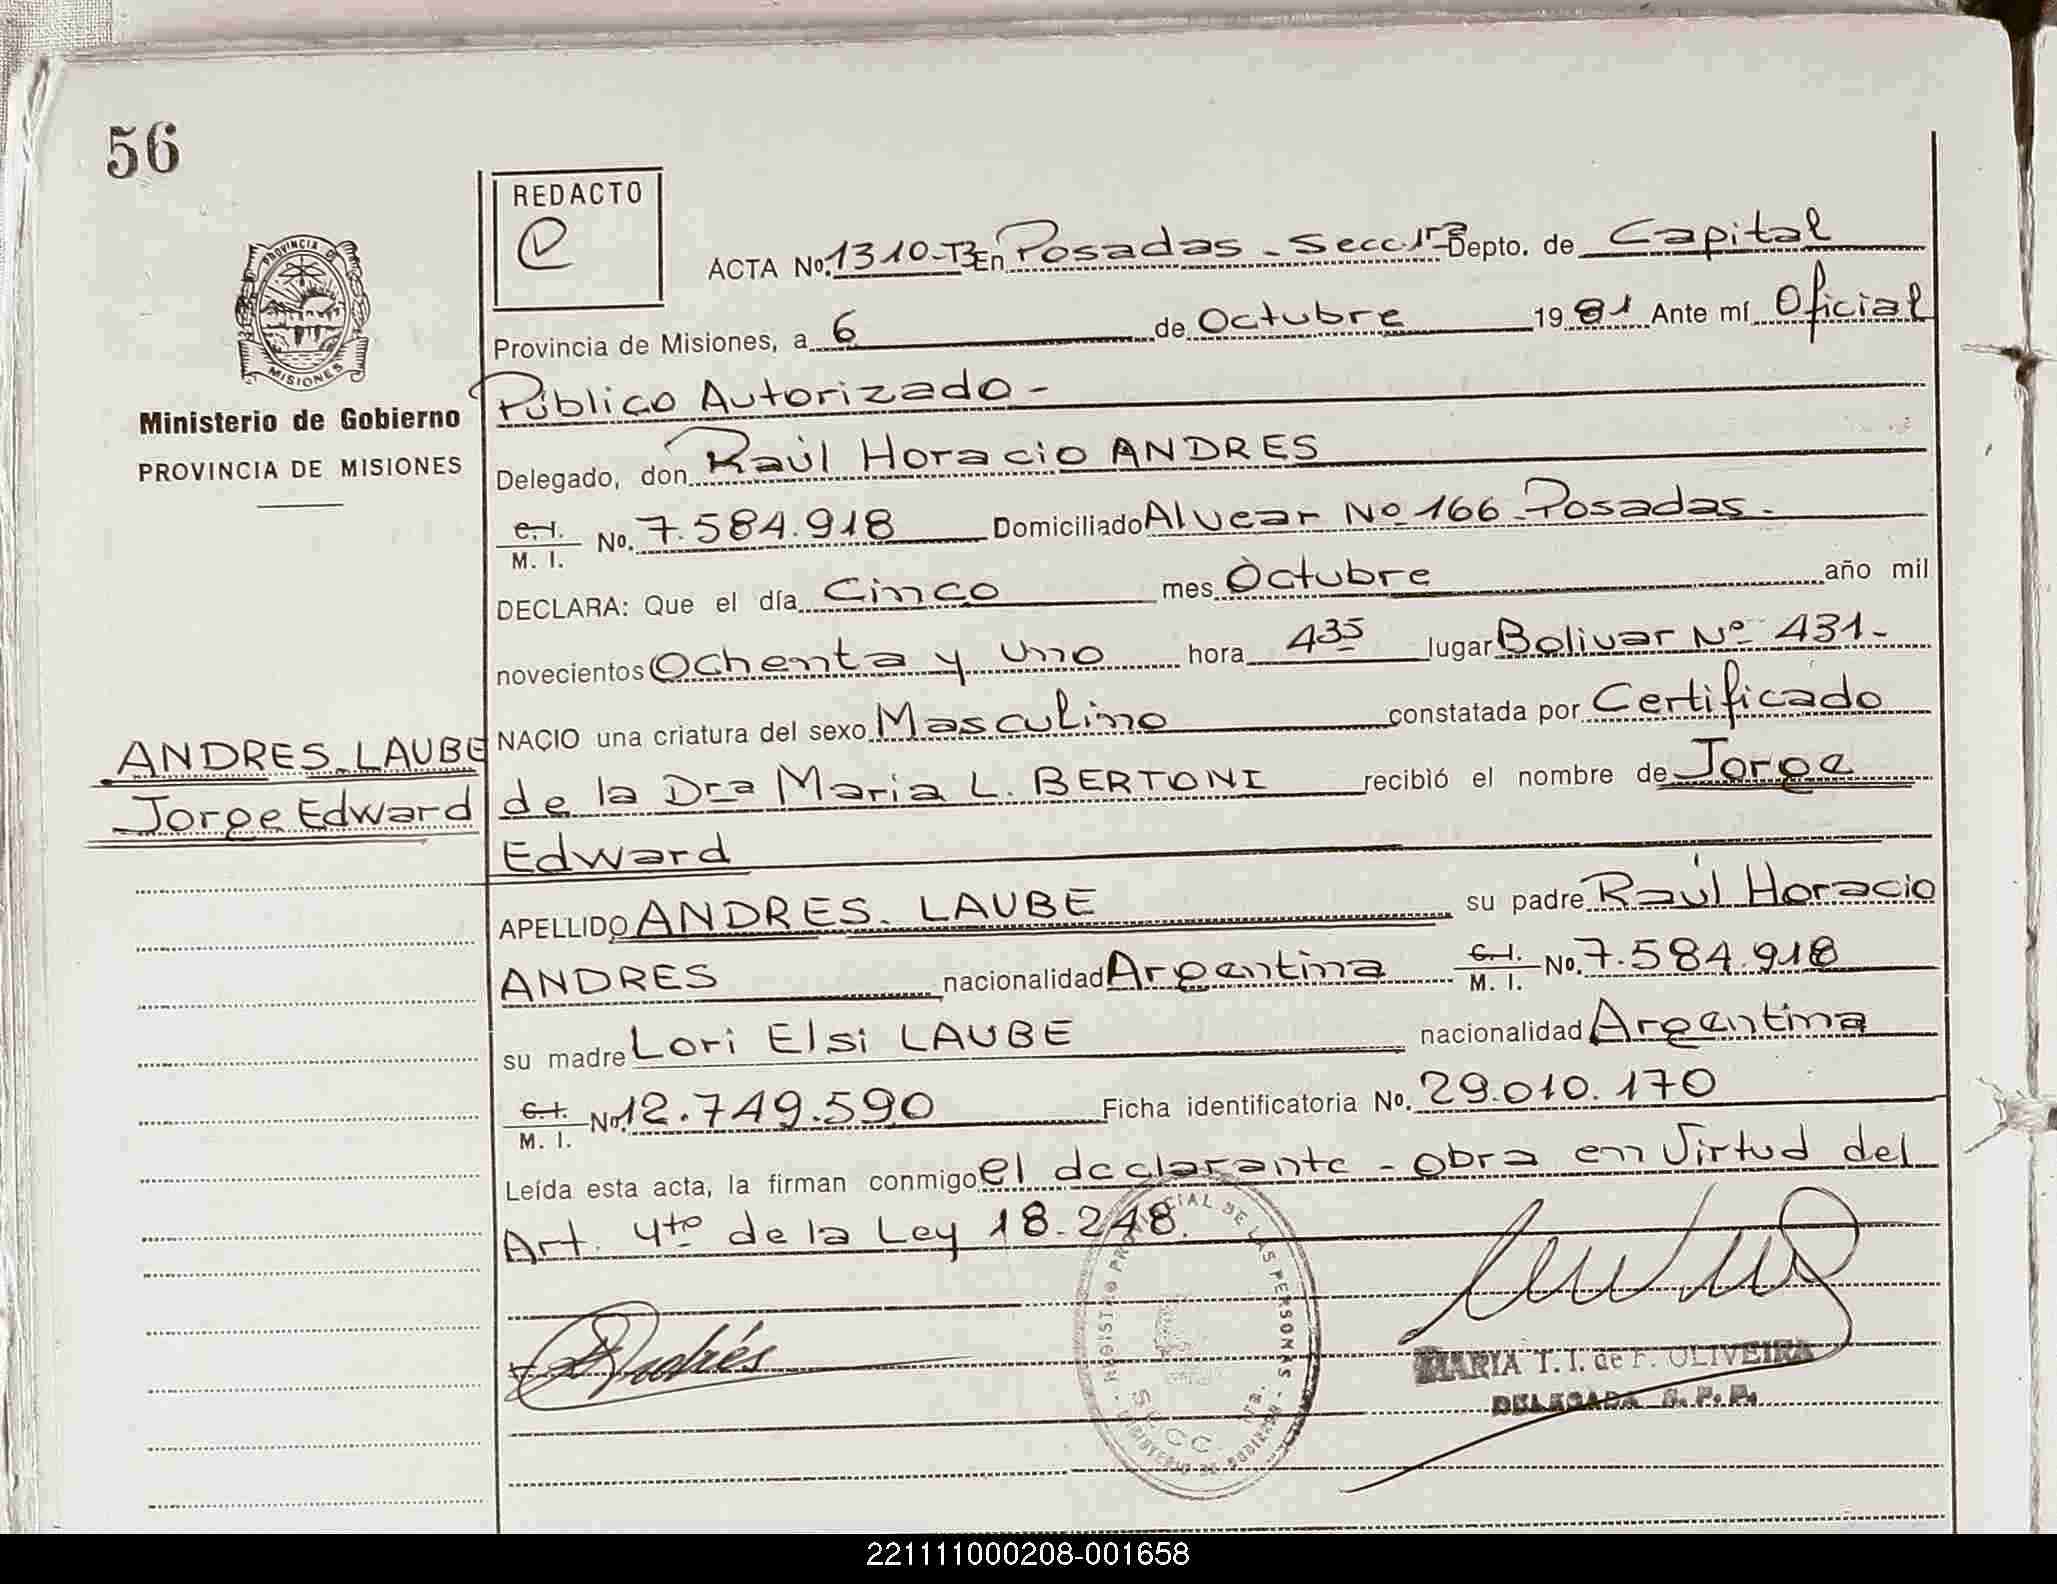 56
REDACTO
PROVINCIA DE
MISIONES
Ministerio de Gobierno
PROVINCIA DE MISIONES
ACTA No. 1310-T3 En Posadas - Secc 1ra Depto. de Capital
Provincia de Misiones, a 6 de Octubre 1981 Ante mí Oficial
Público Autorizado -
Delegado, don Raúl Horacio ANDRES
C. I. / M. I. No. 7.584.918 Domiciliado Alvear Nº 166 - Posadas -
DECLARA: Que el día Cinco mes Octubre año mil
novecientos Ochenta y Uno hora 4 35 lugar Bolivar Nº 431 -
NACIO una criatura del sexo Masculino constatada por Certificado
ANDRES LAUBE
Jorge Edward
de la Dra Maria L. BERTONI recibió el nombre de Jorge
Edward
APELLIDO ANDRES LAUBE su padre Raúl Horacio
ANDRES nacionalidad Argentina C. I. / M. I. No. 7.584.918
su madre Lori Elsi LAUBE nacionalidad Argentina
C. I. / M. I. No. 12.749.590 Ficha identificatoria No. 29.010.170
Leída esta acta, la firman conmigo el declarante - obra en Virtud del
Art. 4to de la Ley 18.248.
REGISTRO PROVINCIAL DE LAS PERSONAS
MINISTERIO DE GOBIERNO
Andrés
MARIA T. I. de F. OLIVEIRA
DELEGADA R. P. P.
221111000208-001658